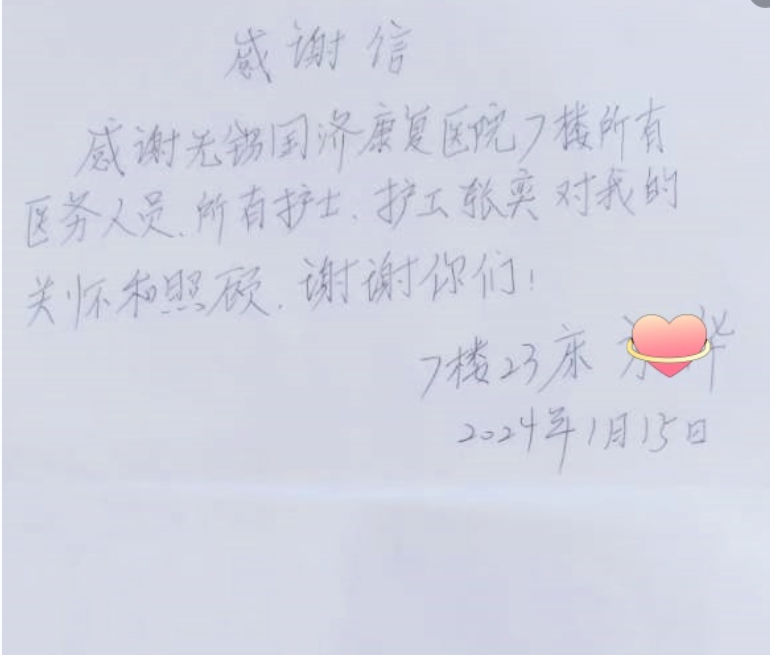 感谢信
感谢无锡国济康复医院7楼所有
医务人员、所有护士、护工张奕对我的
关怀和照顾、谢谢你们!
7楼23床 华
2024年1月15日